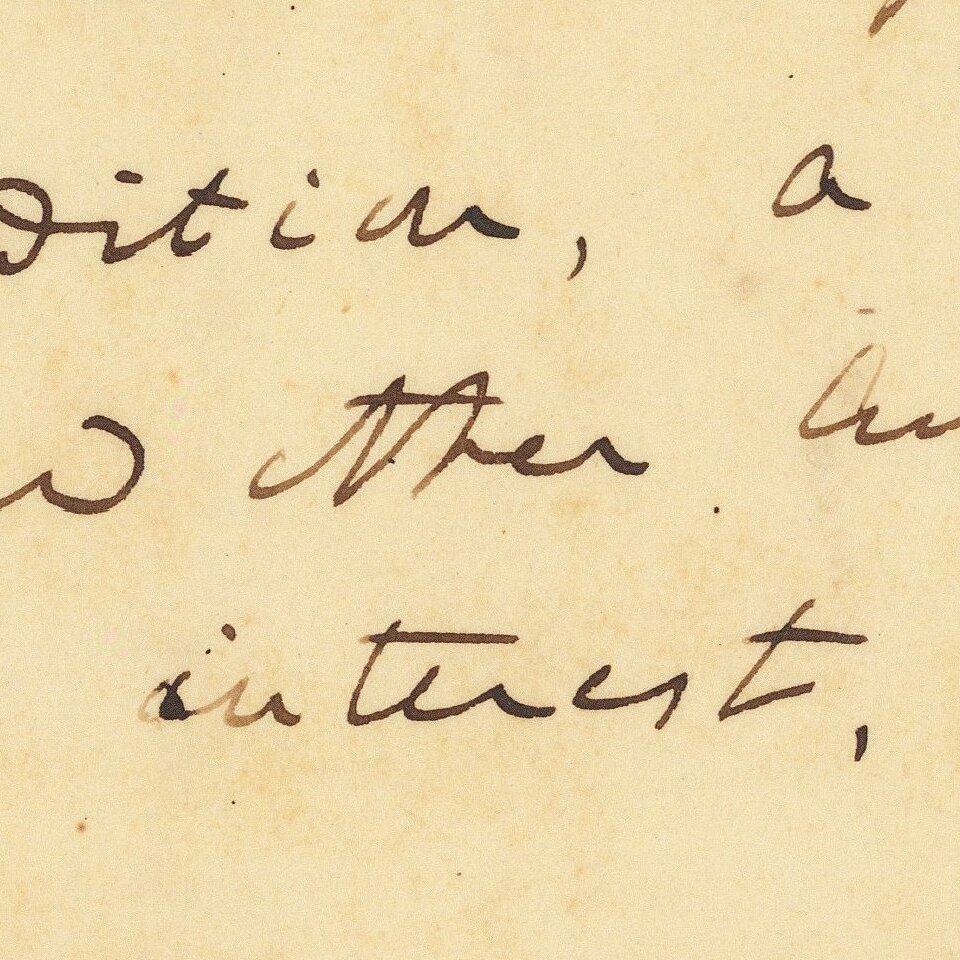 dition, a
other
interest,